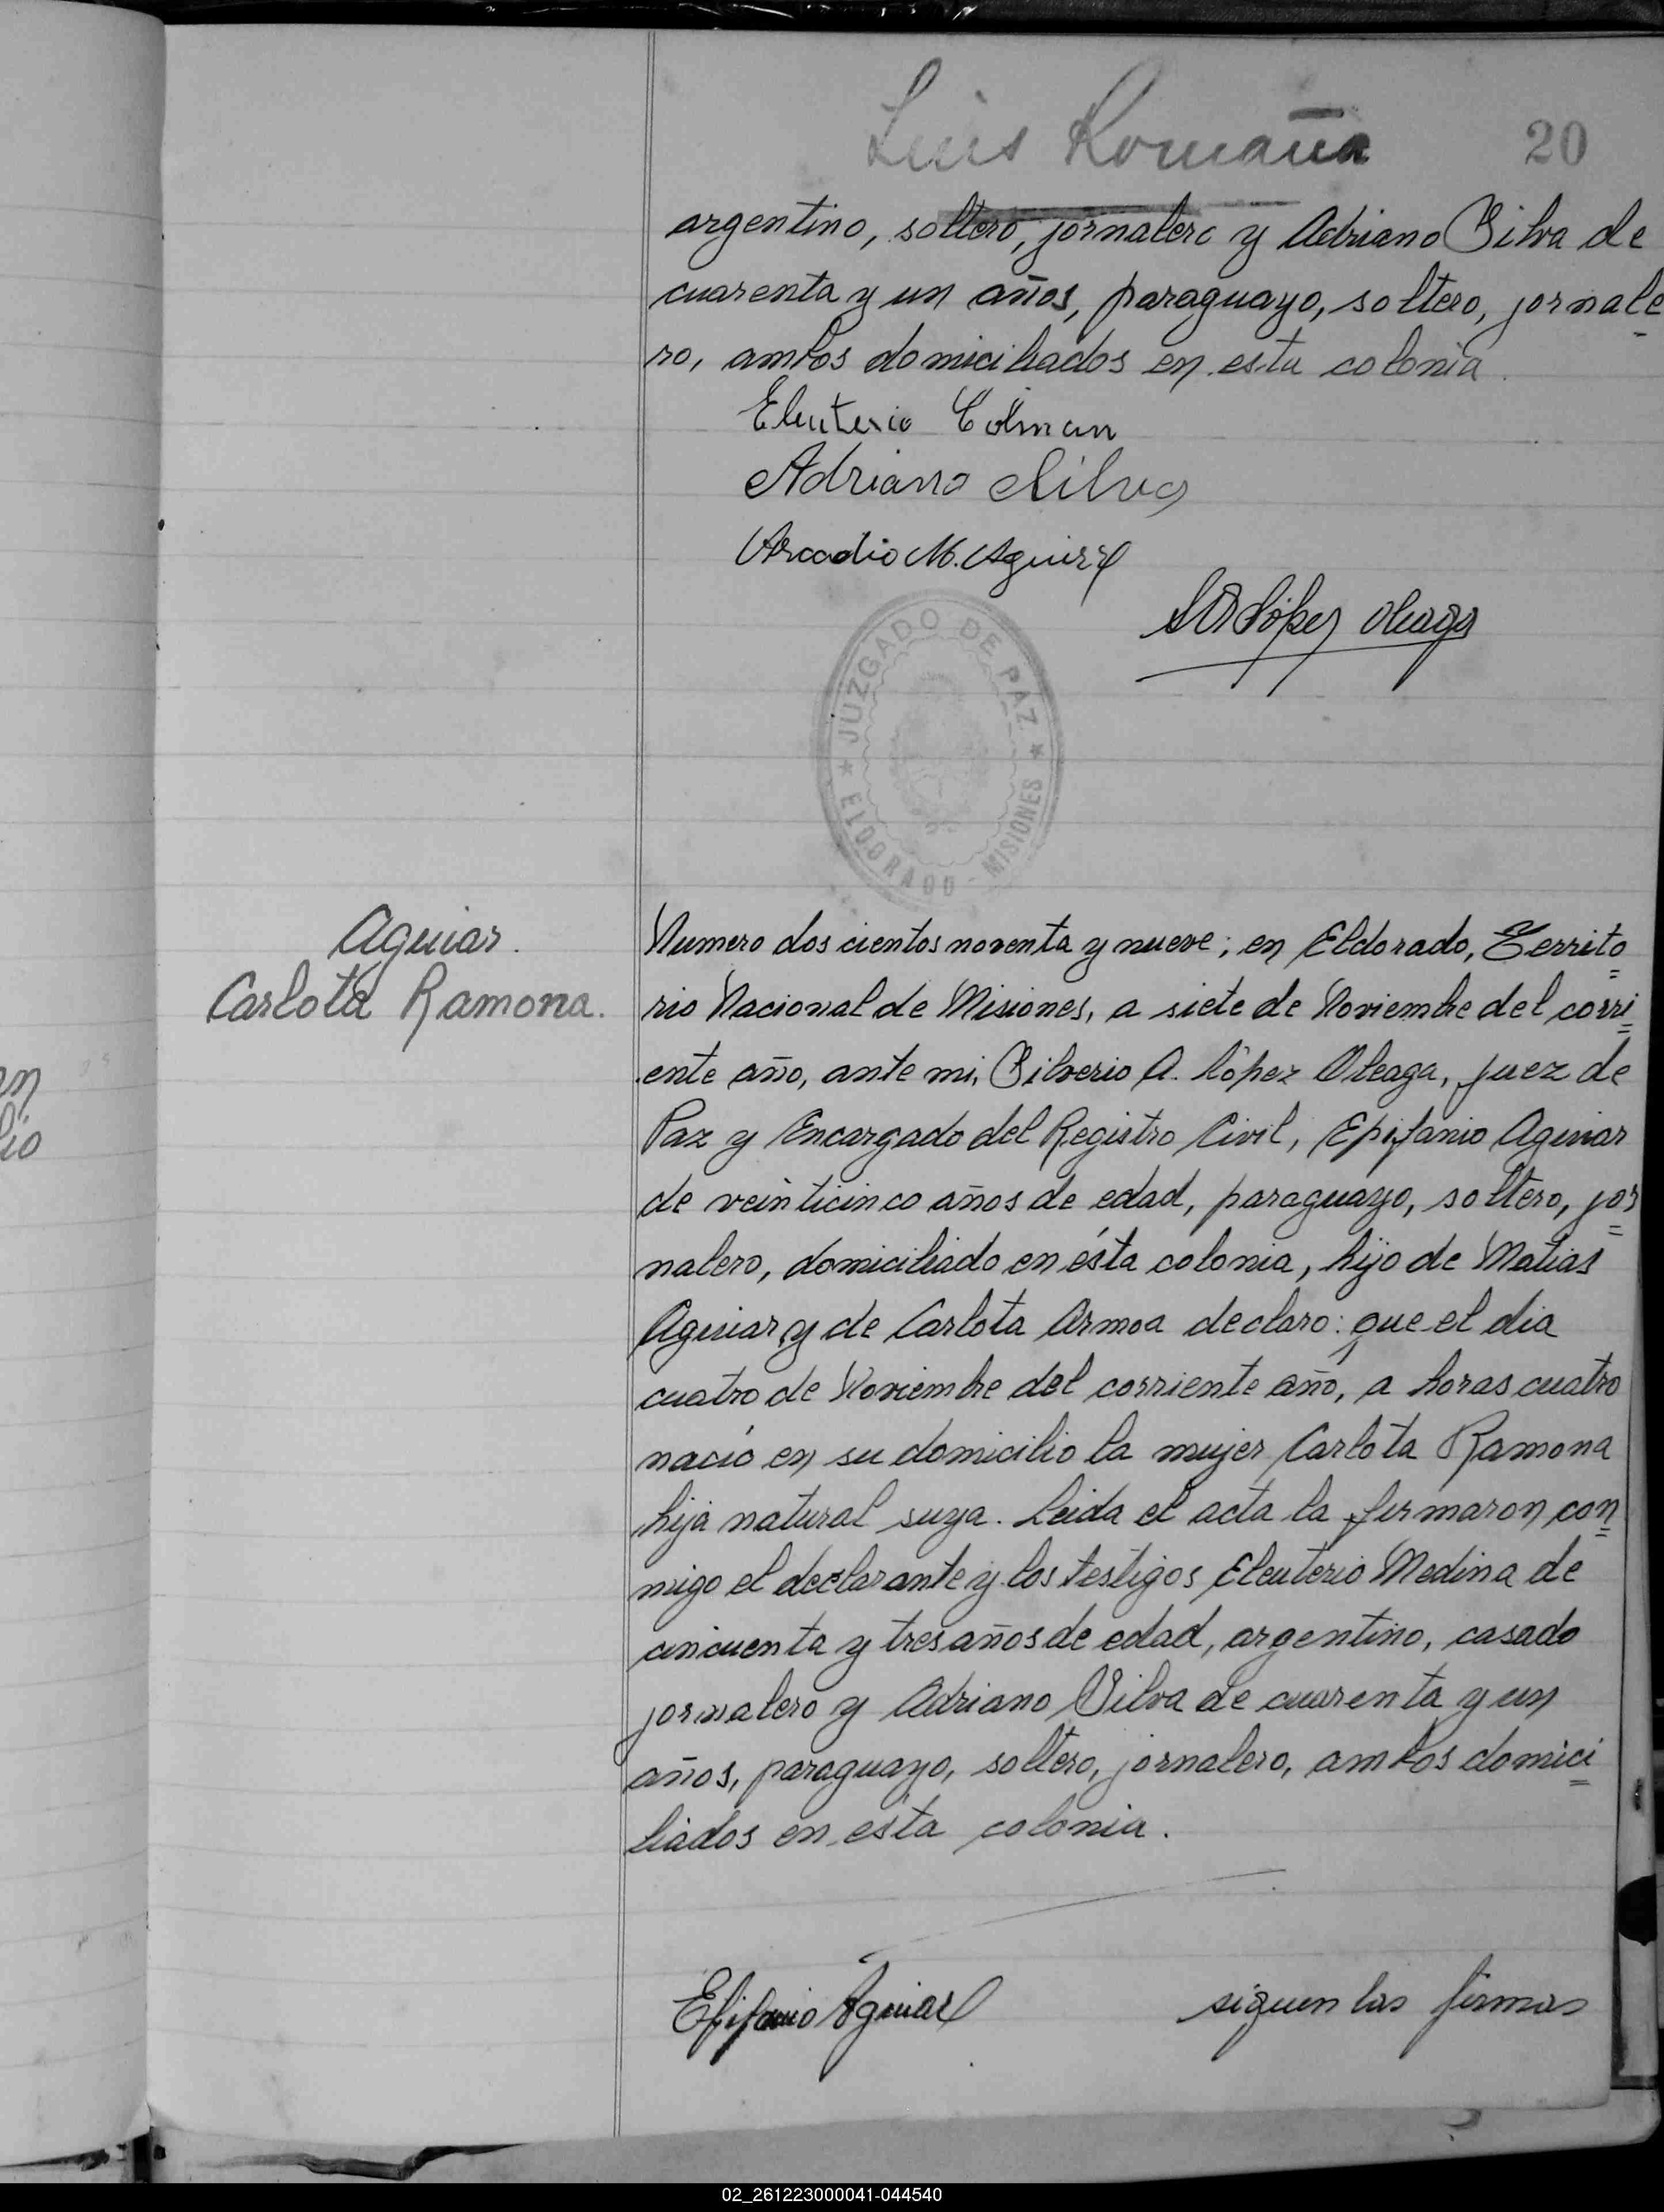 Luis Romaña 20
argentino, soltero, jornalero y Adriano Silva de
cuarenta y un años, paraguayo, soltero, jornale
ro, ambos domiciliados en esta colonia.
Eleuterio Colman
Adriano Silva
Arcadio M. Aguirre
S A López Oleaga
JUZGADO DE PAZ
ELDORADO - MISIONES
Aguiar.
Carlota Ramona.
Numero dos cientos noventa y nueve; en Eldorado, Territo
rio Nacional de Misiones, a siete de Noviembre del corri
ente año, ante mi, Silverio A. López Oleaga, juez de
Paz y Encargado del Registro Civil, Epifanio Aguiar
de veinticinco años de edad, paraguayo, soltero, jor
nalero, domiciliado en ésta colonia, hijo de Matias
Aguiar y de Carlota Armoa declaro: que el dia
cuatro de Noviembre del corriente año, a horas cuatro
nació en su domicilio la mujer Carlota Ramona
hija natural suya. Leida el acta la firmaron con
migo el declarante y los testigos Eleuterio Medina de
cincuenta y tres años de edad, argentino, casado
jornalero y Adriano Silva de cuarenta y un
años, paraguayo, soltero, jornalero, ambos domici
liados en esta colonia.
Epifanio Aguiar siguen las firmas
02_261223000041-044540